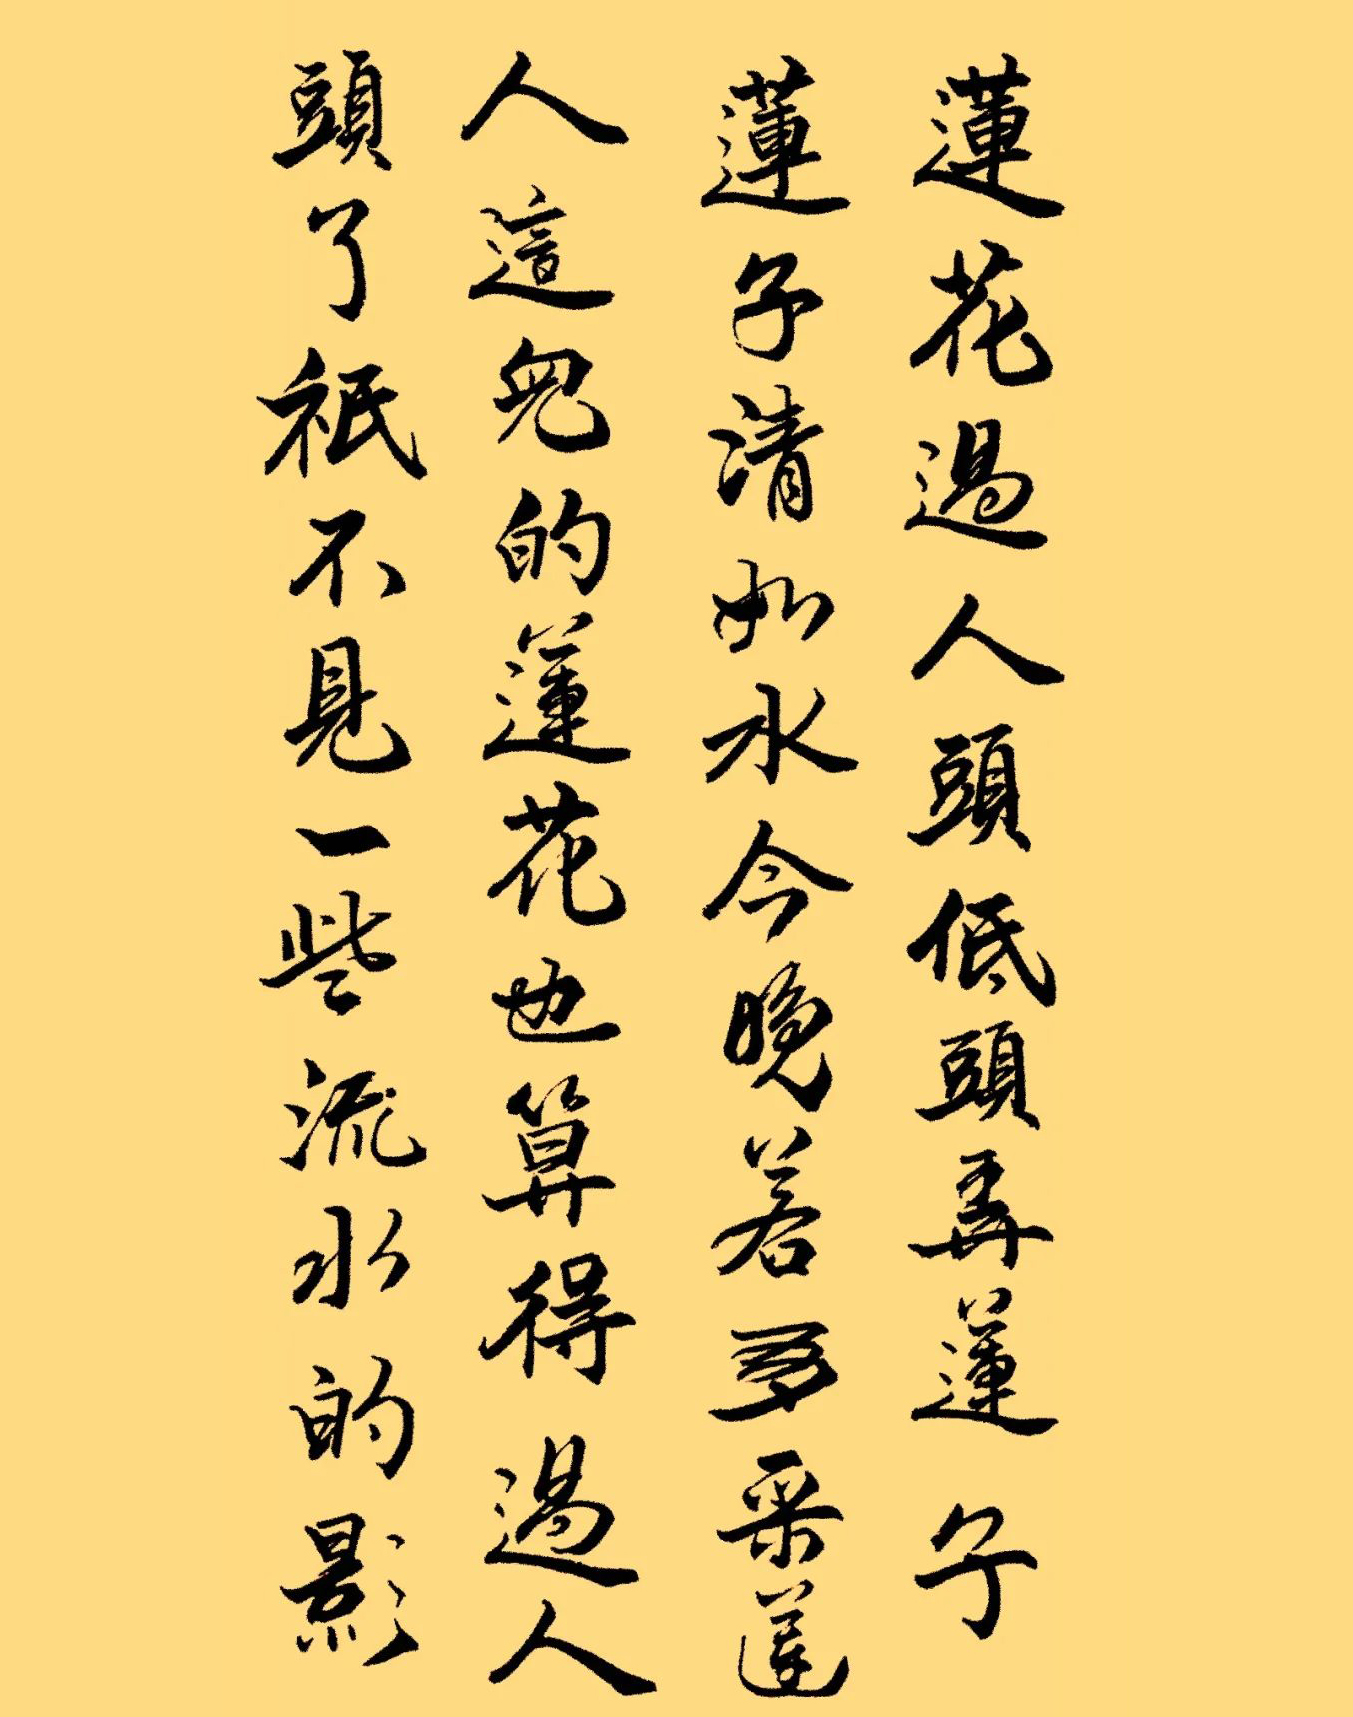 蓮花過人頭低頭弄蓮子
蓮子清如水今晚若多采蓮
人這兒的蓮花也算得過人
頭了祇不見一些流水的影